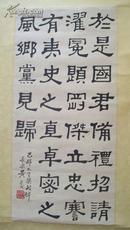 於是國君備禮招請
濯冕題剛傑立忠謇
有夷史之直卓密之
風鄉黨見歸